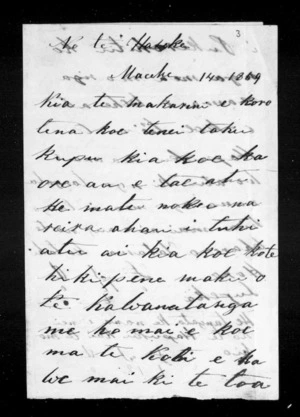 3
Ne te Hauke
Maehe 14 1869
Kia te makarini e koro
tena koe tenei taku
kupu kia koe ka
ore au e tae atu
he mate nokona
reira ahau i tuhi
atu ai kia koe kote
hikipene maku o
te Kawanatanga
me ho mai e koe
ma te Kobi e ho
we mai ki te toa